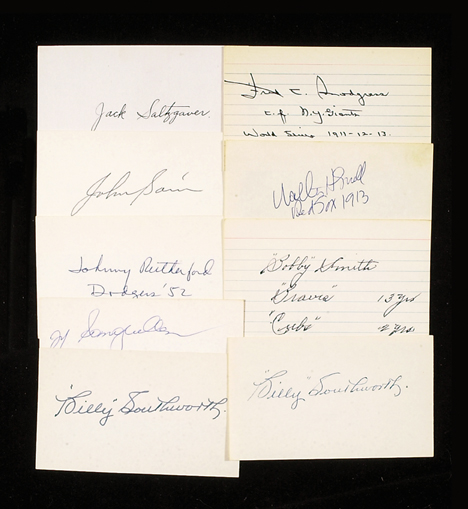 Jack Saltzgaver
John Sain
Johnny Rutherford
Dodgers '52
"Billy" Southworth.
Fred C. Snodgrass
c.f. N.Y. Giants
World Series 1911-12-13.
Red Sox 1913
"Bobby" Smith
"Braves" 13 yrs
"Cubs" 2 yrs.
"Billy" Southworth.